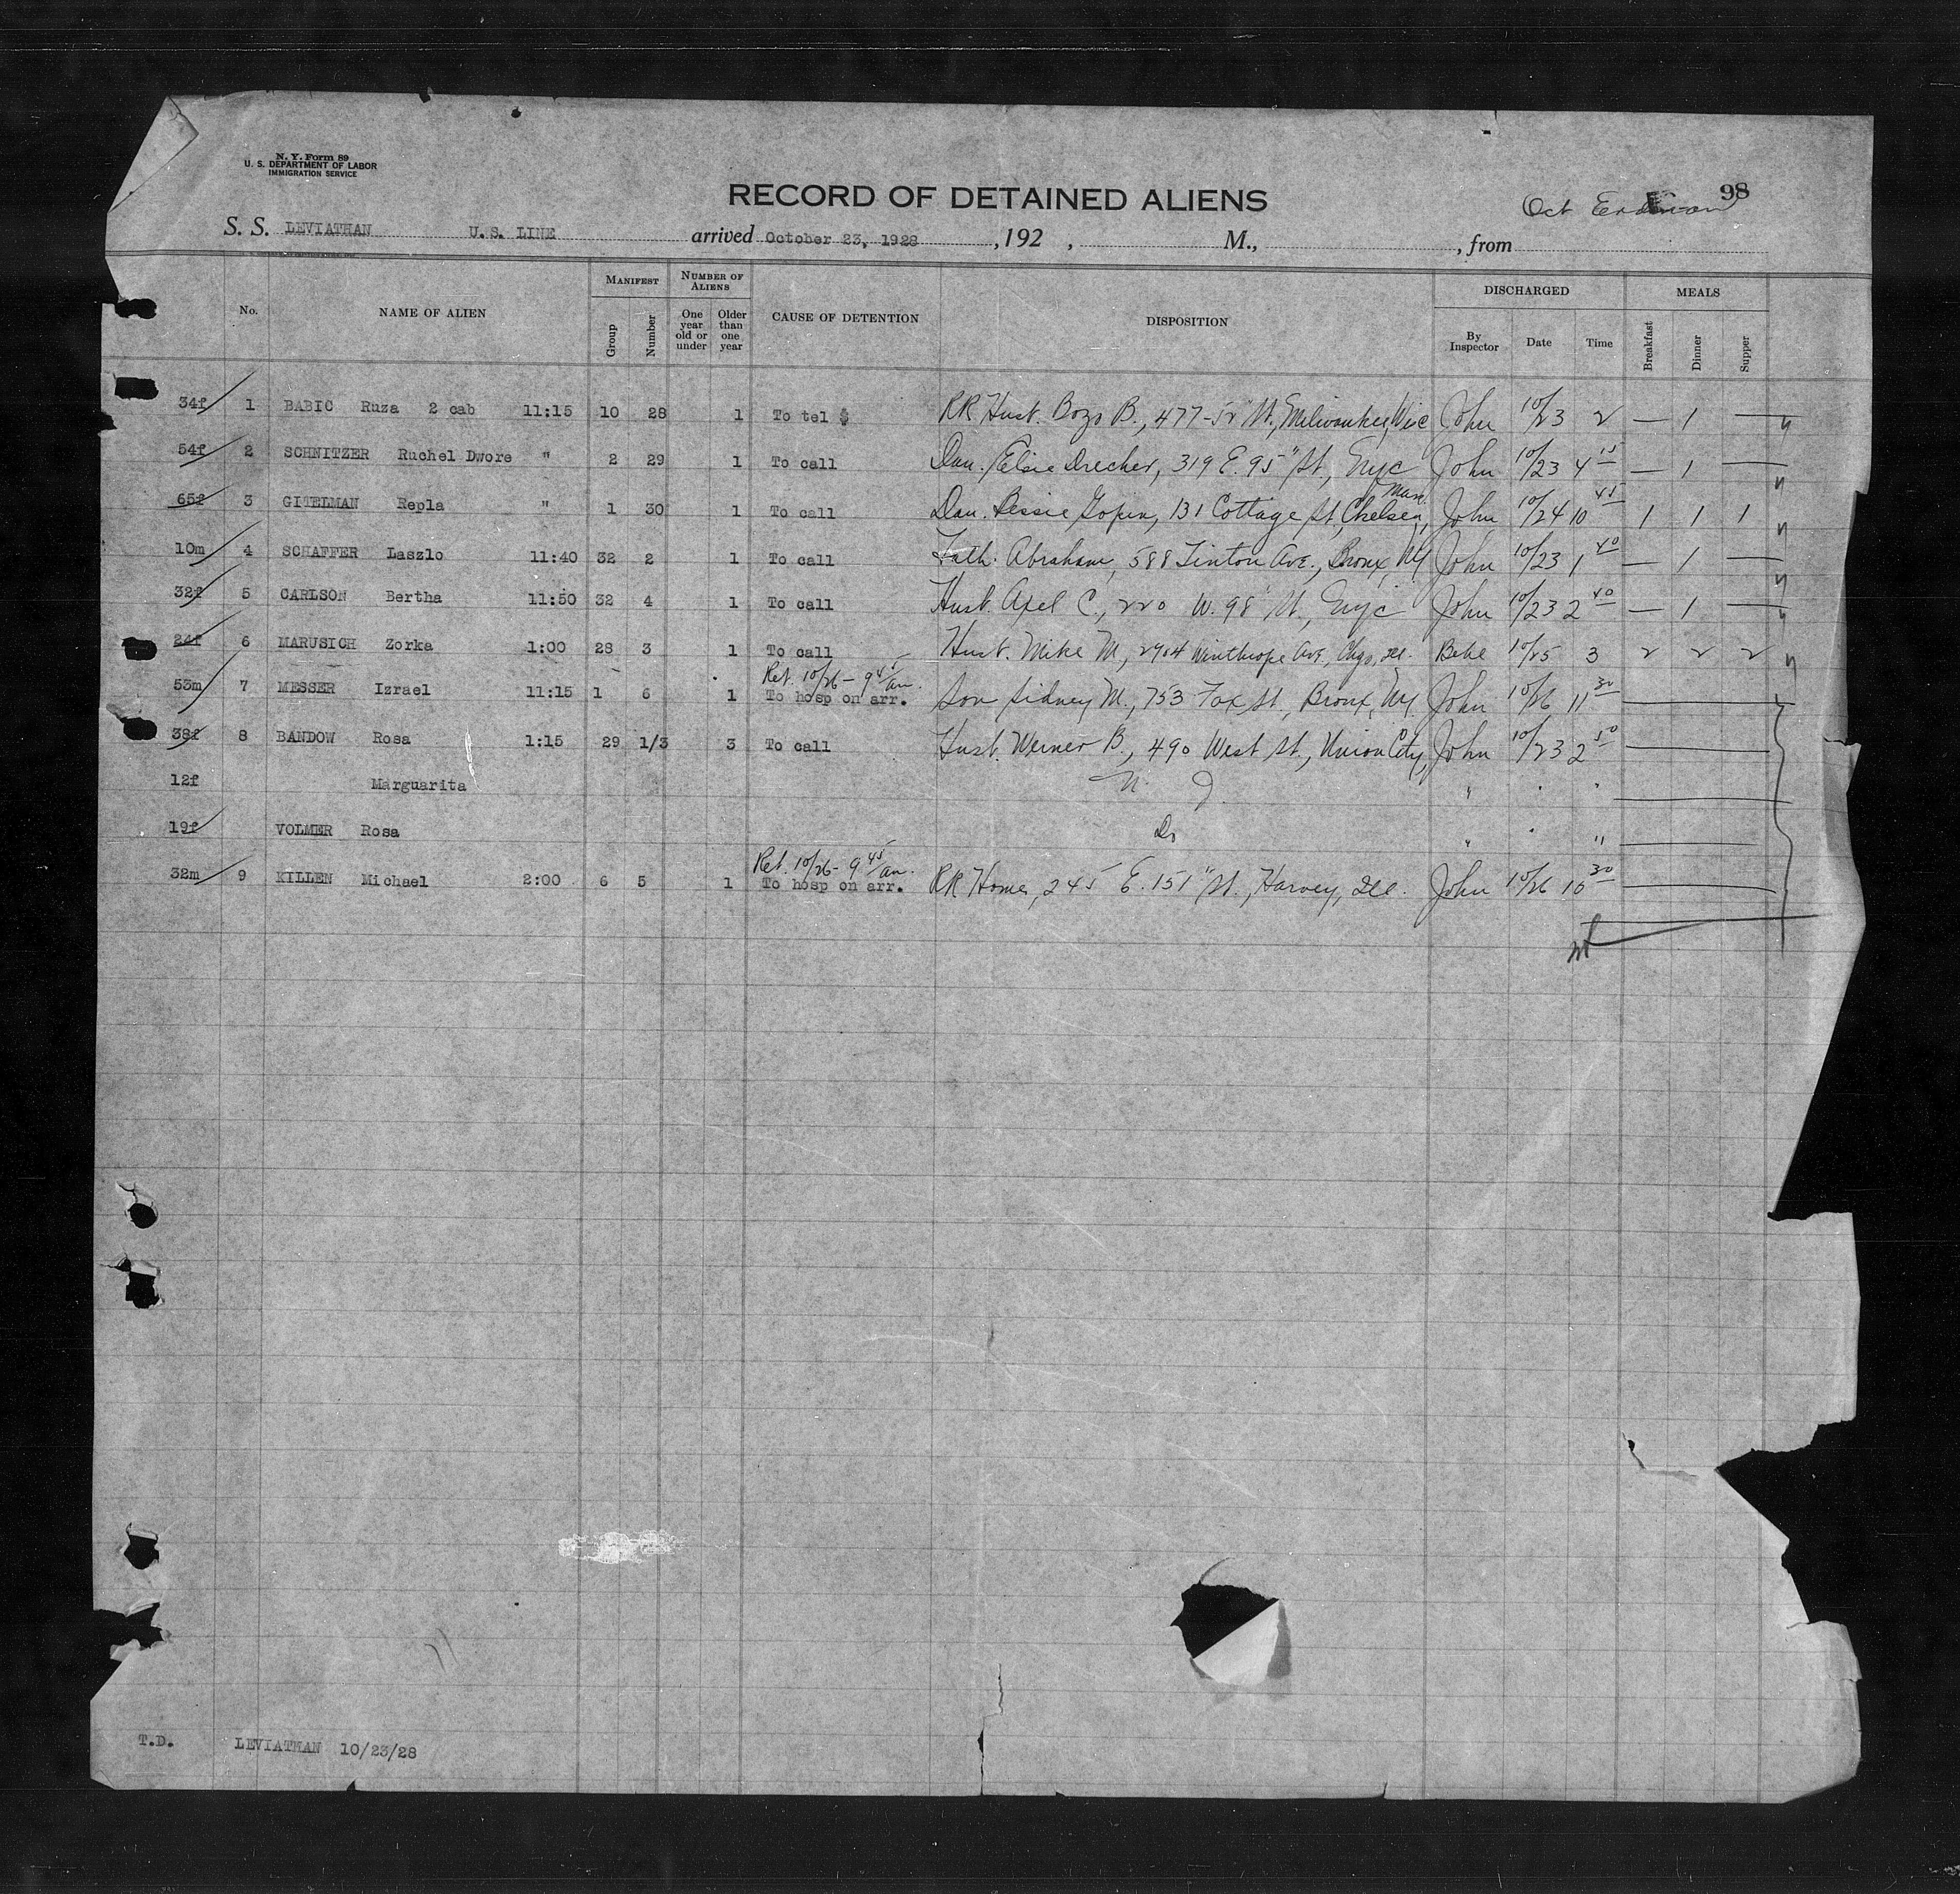 N. Y. Form 89
U. S. DEPARTMENT OF LABOR
IMMIGRATION SERVICE
98
RECORD OF DETAINED ALIENS
Oct
S. S. LEVIATHAN U.S. LINE arrived October 23, 1928 , 192 , M., , from
No. NAME OF ALIEN MANIFEST Group Number NUMBER OF ALIENS One year old or under Older than one year CAUSE OF DETENTION DISPOSITION DISCHARGED By Inspector Date Time MEALS Breakfast Dinner Supper
34f 1 BABIC Ruza 2 cab 11:15 10 28 1 To tel $ RR Husb. Bozo B., 477-52" St., Milwaukee, Wisc John 10/23 2 — 1 —
54f 2 SCHNITZER Ruchel Dwore " 2 29 1 To call Dau. Elsie Drecher, 319 E. 95" St., Nyc John 10/23 4 15 — 1 —
65f 3 GITELMAN Repla " 1 30 1 To call Dau. Bessie Gopin, 131 Cottage St, Chelsea, Mass. John 10/24 10 45 1 1 1
10m 4 SCHAFFER Laszlo 11:40 32 2 1 To call Fath. Abraham, 588 Tinton Ave., Bronx, Ny John 10/23 1 40 — 1 —
32f 5 CARLSON Bertha 11:50 32 4 1 To call Husb. Axel C., 220 W. 98" St., Nyc John 10/23 2 40 — 1 —
24f 6 MARUSICH Zorka 1:00 28 3 1 To call Husb. Mike M, 2904 Winthrope Ave, Chgo, Ill. Bebe 10/25 3 2 2 2
Ret. 10/26 - 9 45 am.
53m 7 MESSER Izrael 11:15 1 6 1 To hosp on arr. Son Sidney M., 753 Fox St., Bronx, Ny John 10/26 11 30
38f 8 BANDOW Rosa 1:15 29 1/3 3 To call Husb. Werner B., 490 West St., Union City, John 10/23 2 50
12f Marguarita N. J. " " "
19f VOLMER Rosa Do " " "
Ret. 10/26 - 9 45 am.
32m 9 KILLEN Michael 2:00 6 5 1 To hosp on arr. RR Home, 245 E. 151" St., Harvey, Ill. John 10/26 10 30
T.D. LEVIATHAN 10/23/28